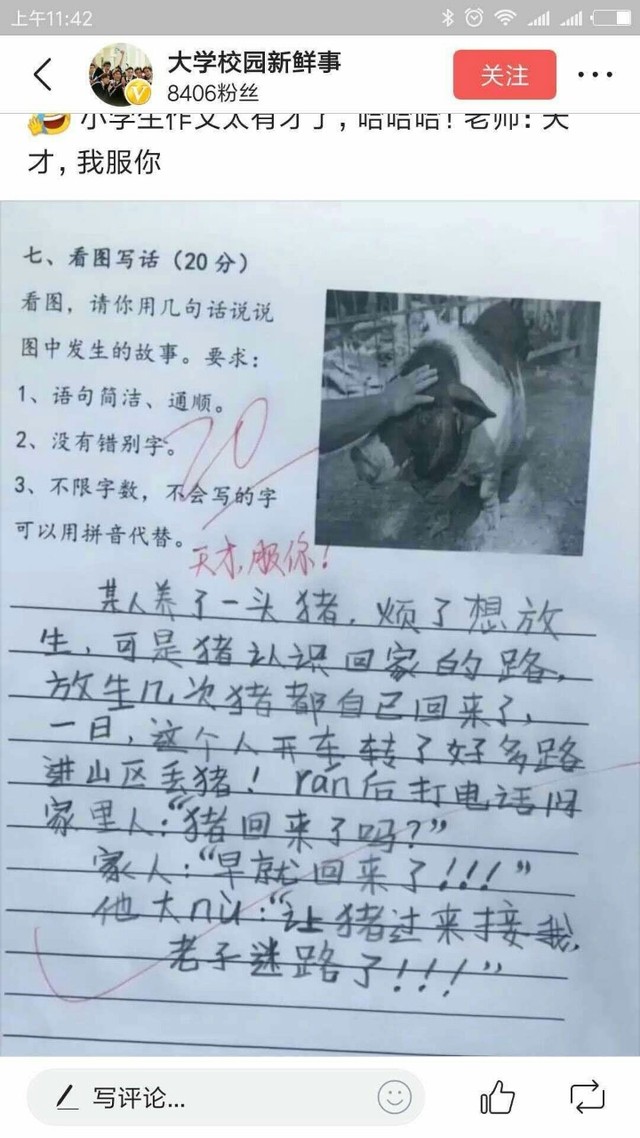 上午11:42
大学校园新鲜事
8406粉丝
关注
小学生作文太有才了，哈哈哈！老师：天
才，我服你
七、看图写话（20分）
看图，请你用几句话说说
图中发生的故事。要求：
1、语句简洁、通顺。
2、没有错别字。
3、不限字数，不会写的字
可以用拼音代替。
20
天才,服你!
某人养了一头猪，烦了想放
生，可是猪认识回家的路，
放生几次猪都自己回来了，
一日，这个人开车转了好多路
进山区丢猪！rán后打电话问
家里人：“猪回来了吗？”
家人：“早就回来了!!!”
他大nù：“让猪过来接我，
老子迷路了!!!”
写评论...